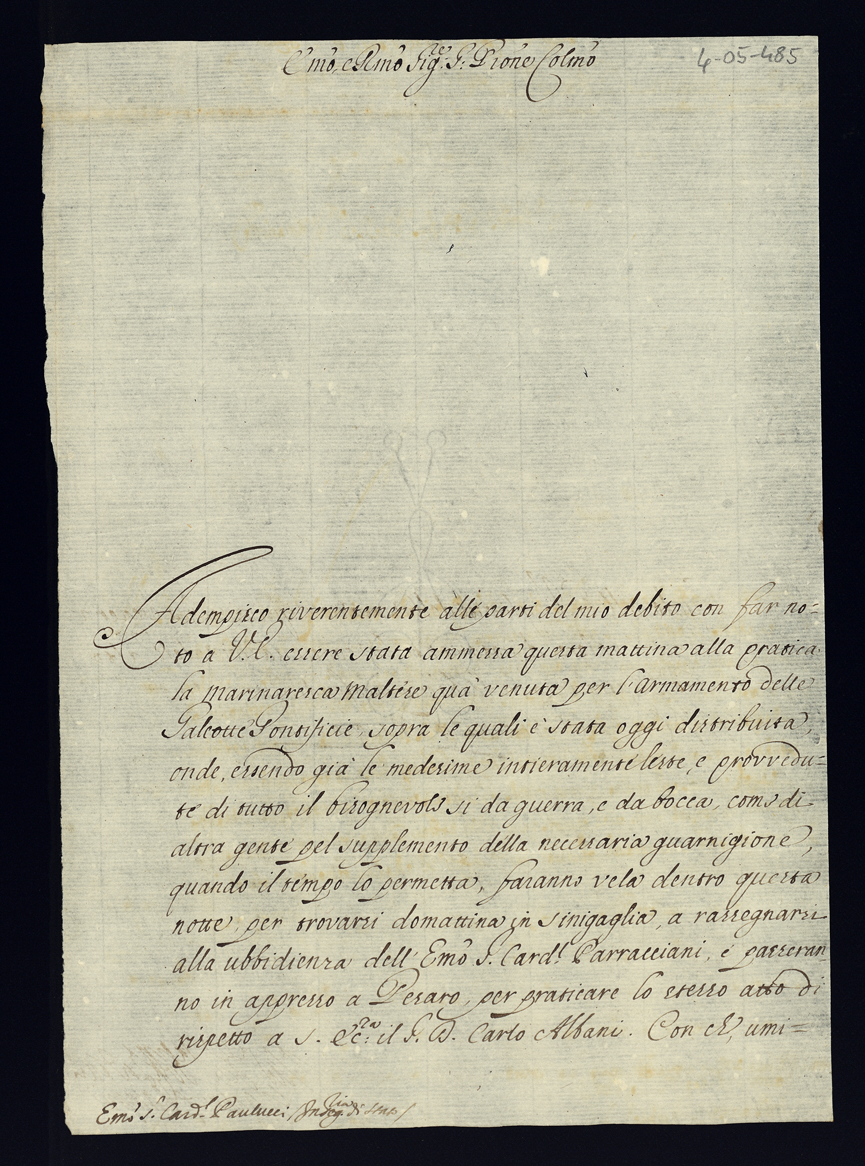 Emo, e Rmo Sigre P: Prone Colmo
4-05-485
Adempisco riverentemente alle parti del mio debito con far no=
to a V.E. essere stata ammessa questa mattina alla pratica
la marinaresca Maltese quà venuta per l'armamento delle
Galeotte Pontificie, sopra le quali è stata oggi distribuita,
onde, essendo già le medesime intieramente leste, e provvedu=
te di tutto il bisognevole sì da guerra, e da bocca, come di
altra gente pel supplemento della necessaria guarnigione,
quando il tempo lo permetta, faranno vela dentro questa
notte, per trovarsi domattina in Sinigaglia, a rassegnarsi
alla ubbidienza dell' Emo S. Cardl Parracciani, e passeran
no in appresso a Pesaro, per praticare lo stesso atto di
rispetto a S. Ecc.za il S. D. Carlo Albani. Con ch', umi=
Emo Sr Cardl Paulucci / di Stato /